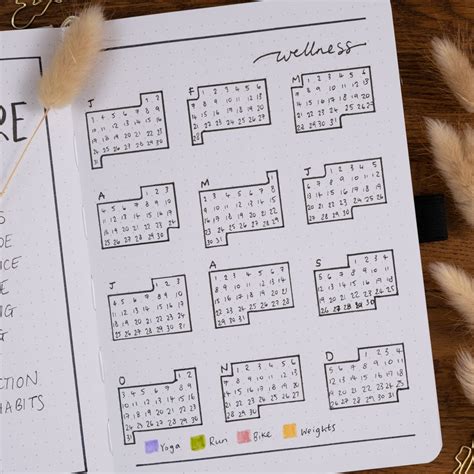 RE
CTION
HABITS
wellness
J
1 2
3 4 5 6 7 8 9
10 11 12 13 14 15 16
17 18 19 20 21 22 23
24 25 26 27 28 29 30
31
F
1 2 3 4 5 6
7 8 9 10 11 12 13
14 15 16 17 18 19 20
21 22 23 24 25 26 27
28
M
1 2 3 4 5 6
7 8 9 10 11 12 13
14 15 16 17 18 19 20
21 22 23 24 25 26 27
28 29 30 31
A
1 2 3
4 5 6 7 8 9 10
11 12 13 14 15 16 17
18 19 20 21 22 23 24
25 26 27 28 29 30
M
1
2 3 4 5 6 7 8
9 10 11 12 13 14 15
16 17 18 19 20 21 22
23 24 25 26 27 28 29
30 31
J
1 2 3 4 5
6 7 8 9 10 11 12
13 14 15 16 17 18 19
20 21 22 23 24 25 26
27 28 29 30
J
1 2 3
4 5 6 7 8 9 10
11 12 13 14 15 16 17
18 19 20 21 22 23 24
25 26 27 28 29 30 31
A
1 2 3 4 5 6 7
8 9 10 11 12 13 14
15 16 17 18 19 20 21
22 23 24 25 26 27 28
29 30 31
S
1 2 3 4
5 6 7 8 9 10 11
12 13 14 15 16 17 18
19 20 21 22 23 24 25
26 27 28 29 30
O
1 2
3 4 5 6 7 8 9
10 11 12 13 14 15 16
17 18 19 20 21 22 23
24 25 26 27 28 29 30
31
N
1 2 3 4 5 6
7 8 9 10 11 12 13
14 15 16 17 18 19 20
21 22 23 24 25 26 27
28 29 30
D
1 2 3 4
5 6 7 8 9 10 11
12 13 14 15 16 17 18
19 20 21 22 23 24 25
26 27 28 29 30 31
Yoga Run Bike Weights